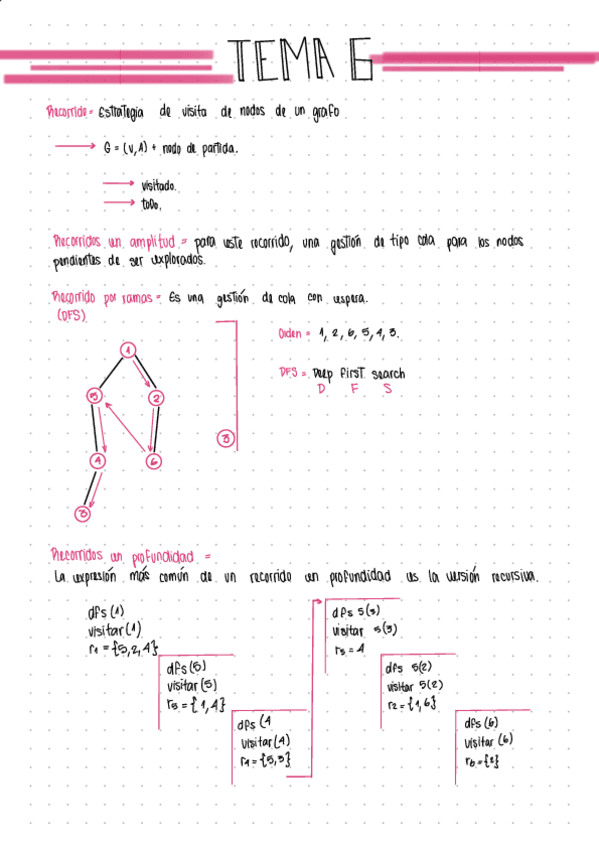 TEMA 6
Recorrido = Estrategia de visita de nodos de un grafo
G = (V, A) + nodo de partida.
visitado.
todo.
Recorridos en amplitud = para este recorrido, una gestión de tipo cola para los nodos
pendientes de ser explorados.
Recorrido por ramas = Es una gestión de cola con espera.
(DFS)
Orden = 1, 2, 6, 5, 4, 3.
DFS = Deep First search
D F S
1
5
2
3
4
6
3
Recorridos en profundidad =
La expresión más común de un recorrido en profundidad es la versión recursiva.
dfs (1)
visitar (1)
r1 = {5, 2, 4}
dfs (5)
visitar (5)
r5 = {1, 4}
dfs (4
visitar (4)
r4 = {5, 3}
dfs 5(3)
visitar 5(3)
r3 = 4
dfs 5(2)
visitar 5(2)
r2 = {1, 6}
dfs (6)
visitar (6)
r6 = {2}